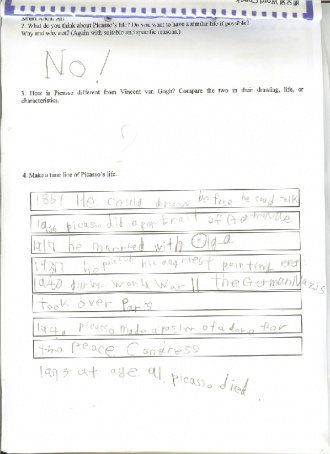 2. What do you think about Picasso's life? Do you want to have a similar life if possible?
Why and why not? (Again with suitable and specific reasons.)
No!
3. How is Picasso different from Vincent van Gogh? Compare the two in their drawing, life, or
characteristics.
?
4. Make a time line of Picasso's life.
1881 He could draw before he could talk
picasso did a portrait of Gertrude
he married with Olga
1937 he painted his angriest painting ever
1940 during World War II The German Nazis
took over Paris
picasso made a poster of a dove for
the peace Congress
at age 91 picasso died.